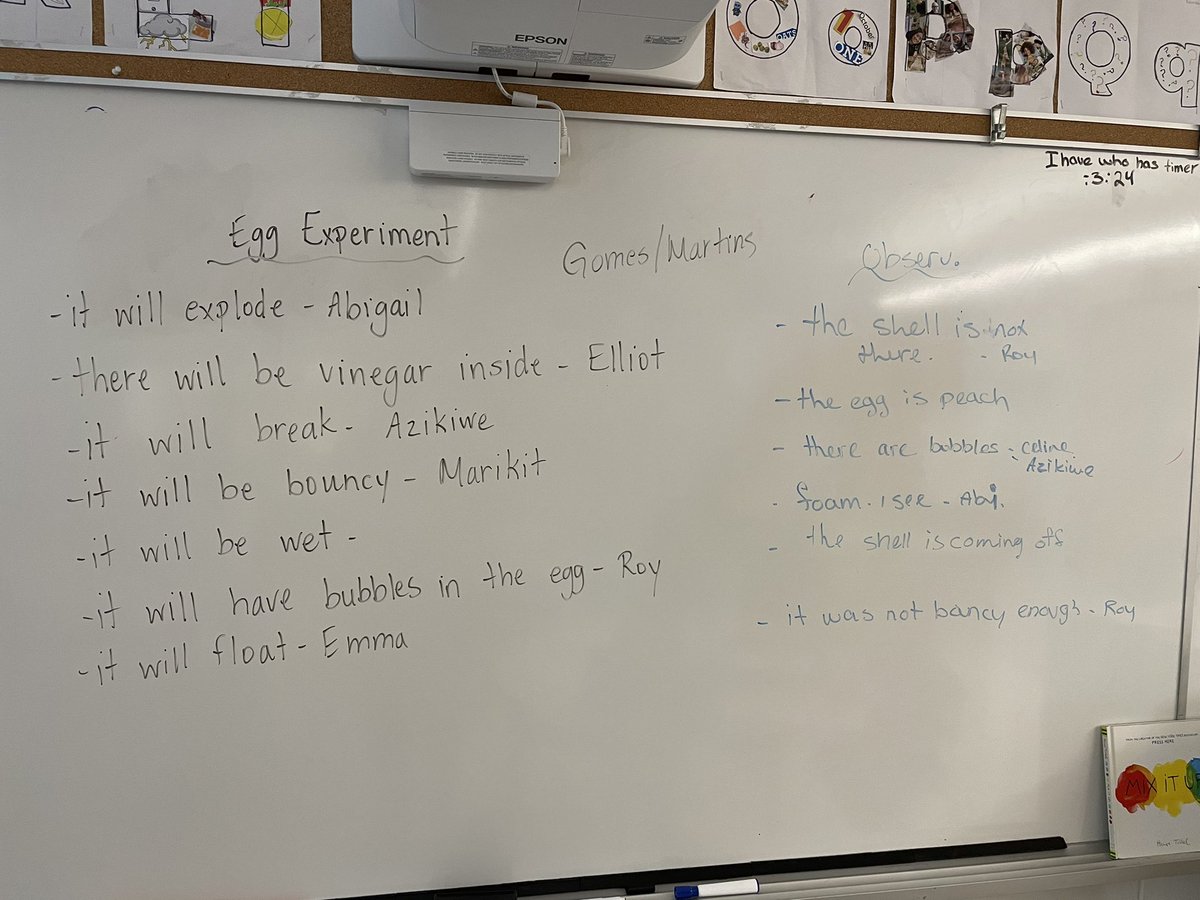 EPSON
DATS
OCTOBRE
ONE
I have who has timer
:3:24
Egg Experiment
- it will explode - Abigail
- there will be vinegar inside - Elliot
- it will break - Azikiwe
- it will be bouncy - Marikit
- it will be wet -
- it will have bubbles in the egg - Roy
- it will float - Emma
Gomes/Martins
Observ.
- the shell is not
there. - Roy
- the egg is peach
- there are bubbles - Celine
Azikiwe
- foam I see - Abi.
- the shell is coming off
- it was not boncy enough - Roy
PRESS HERE
MIX IT UP
Hervé Tullet